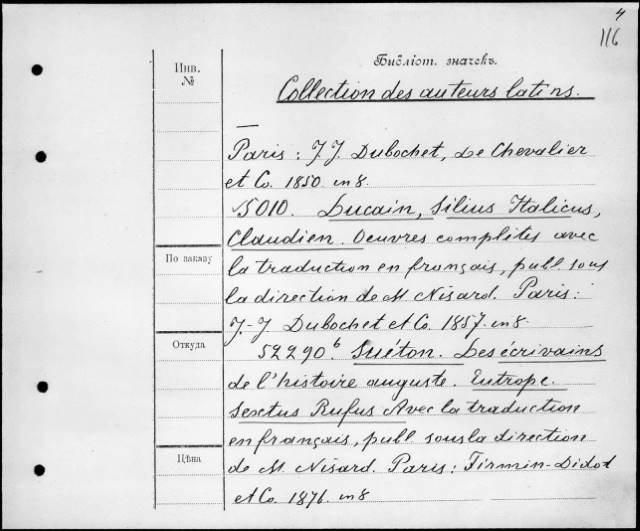 4
116
Инв.
№
Библіот. значекъ.
Collection des auteurs latins.
Paris: J. J. Dubochet, Le Chevalier
et Co. 1850. in 8.
5010. Lucain, Silius Italicus,
Claudien. Oeuvres complètes avec
По заказу
la traduction en français, publ. sous
la direction de M. Nisard. Paris:
J.-J. Dubochet et Co. 1857. in 8.
Откуда
52290 b. Suéton. Les écrivains
de l'histoire auguste. Eutrope.
Sextus Rufus Avec la traduction
en français, publ sous la direction
Цѣна
de M. Nisard. Paris: Firmin-Didot
et Co. 1876. in 8